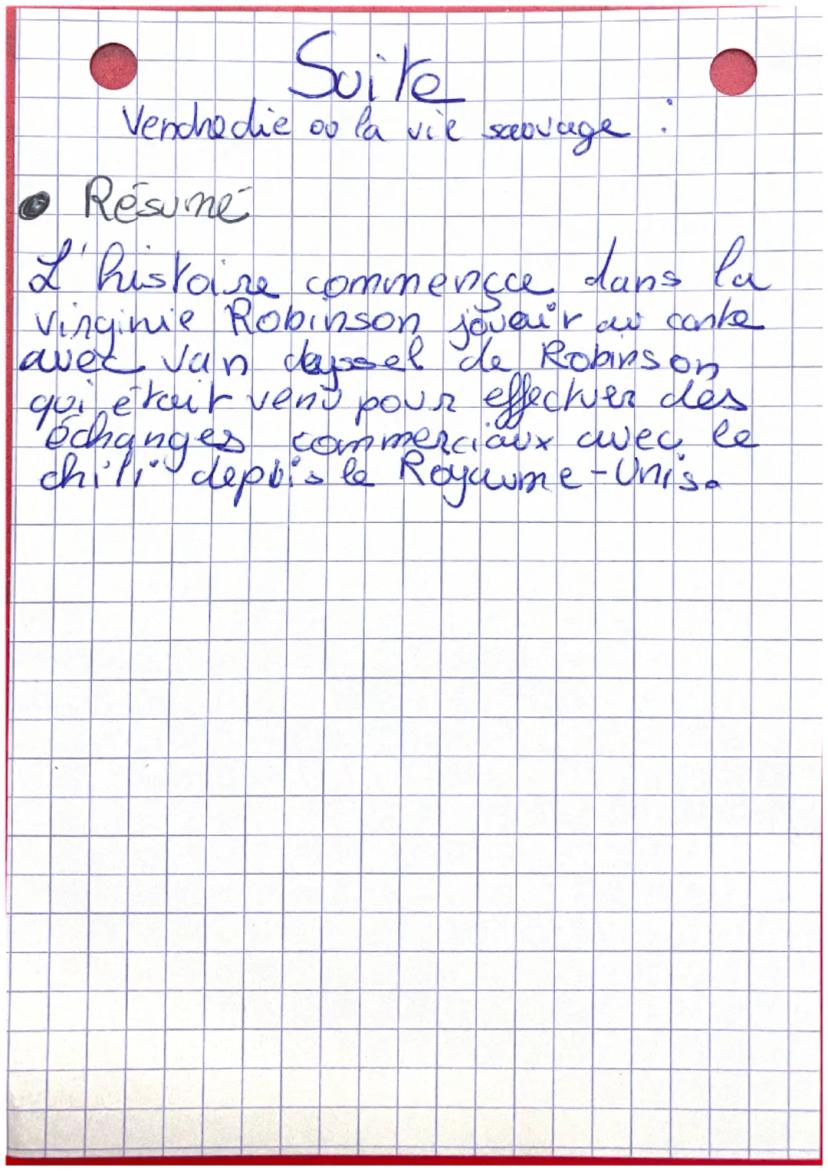 Suite
Vendredie ou la vie sauvage :
• Résumé
L'histoire commençce dans la
virginie Robinson jouair au carte
avec Van deyssel de Robinson
qui était venu pour effectuer des
échanges commerciaux avec le
chili depuis le Royaume-Unis.